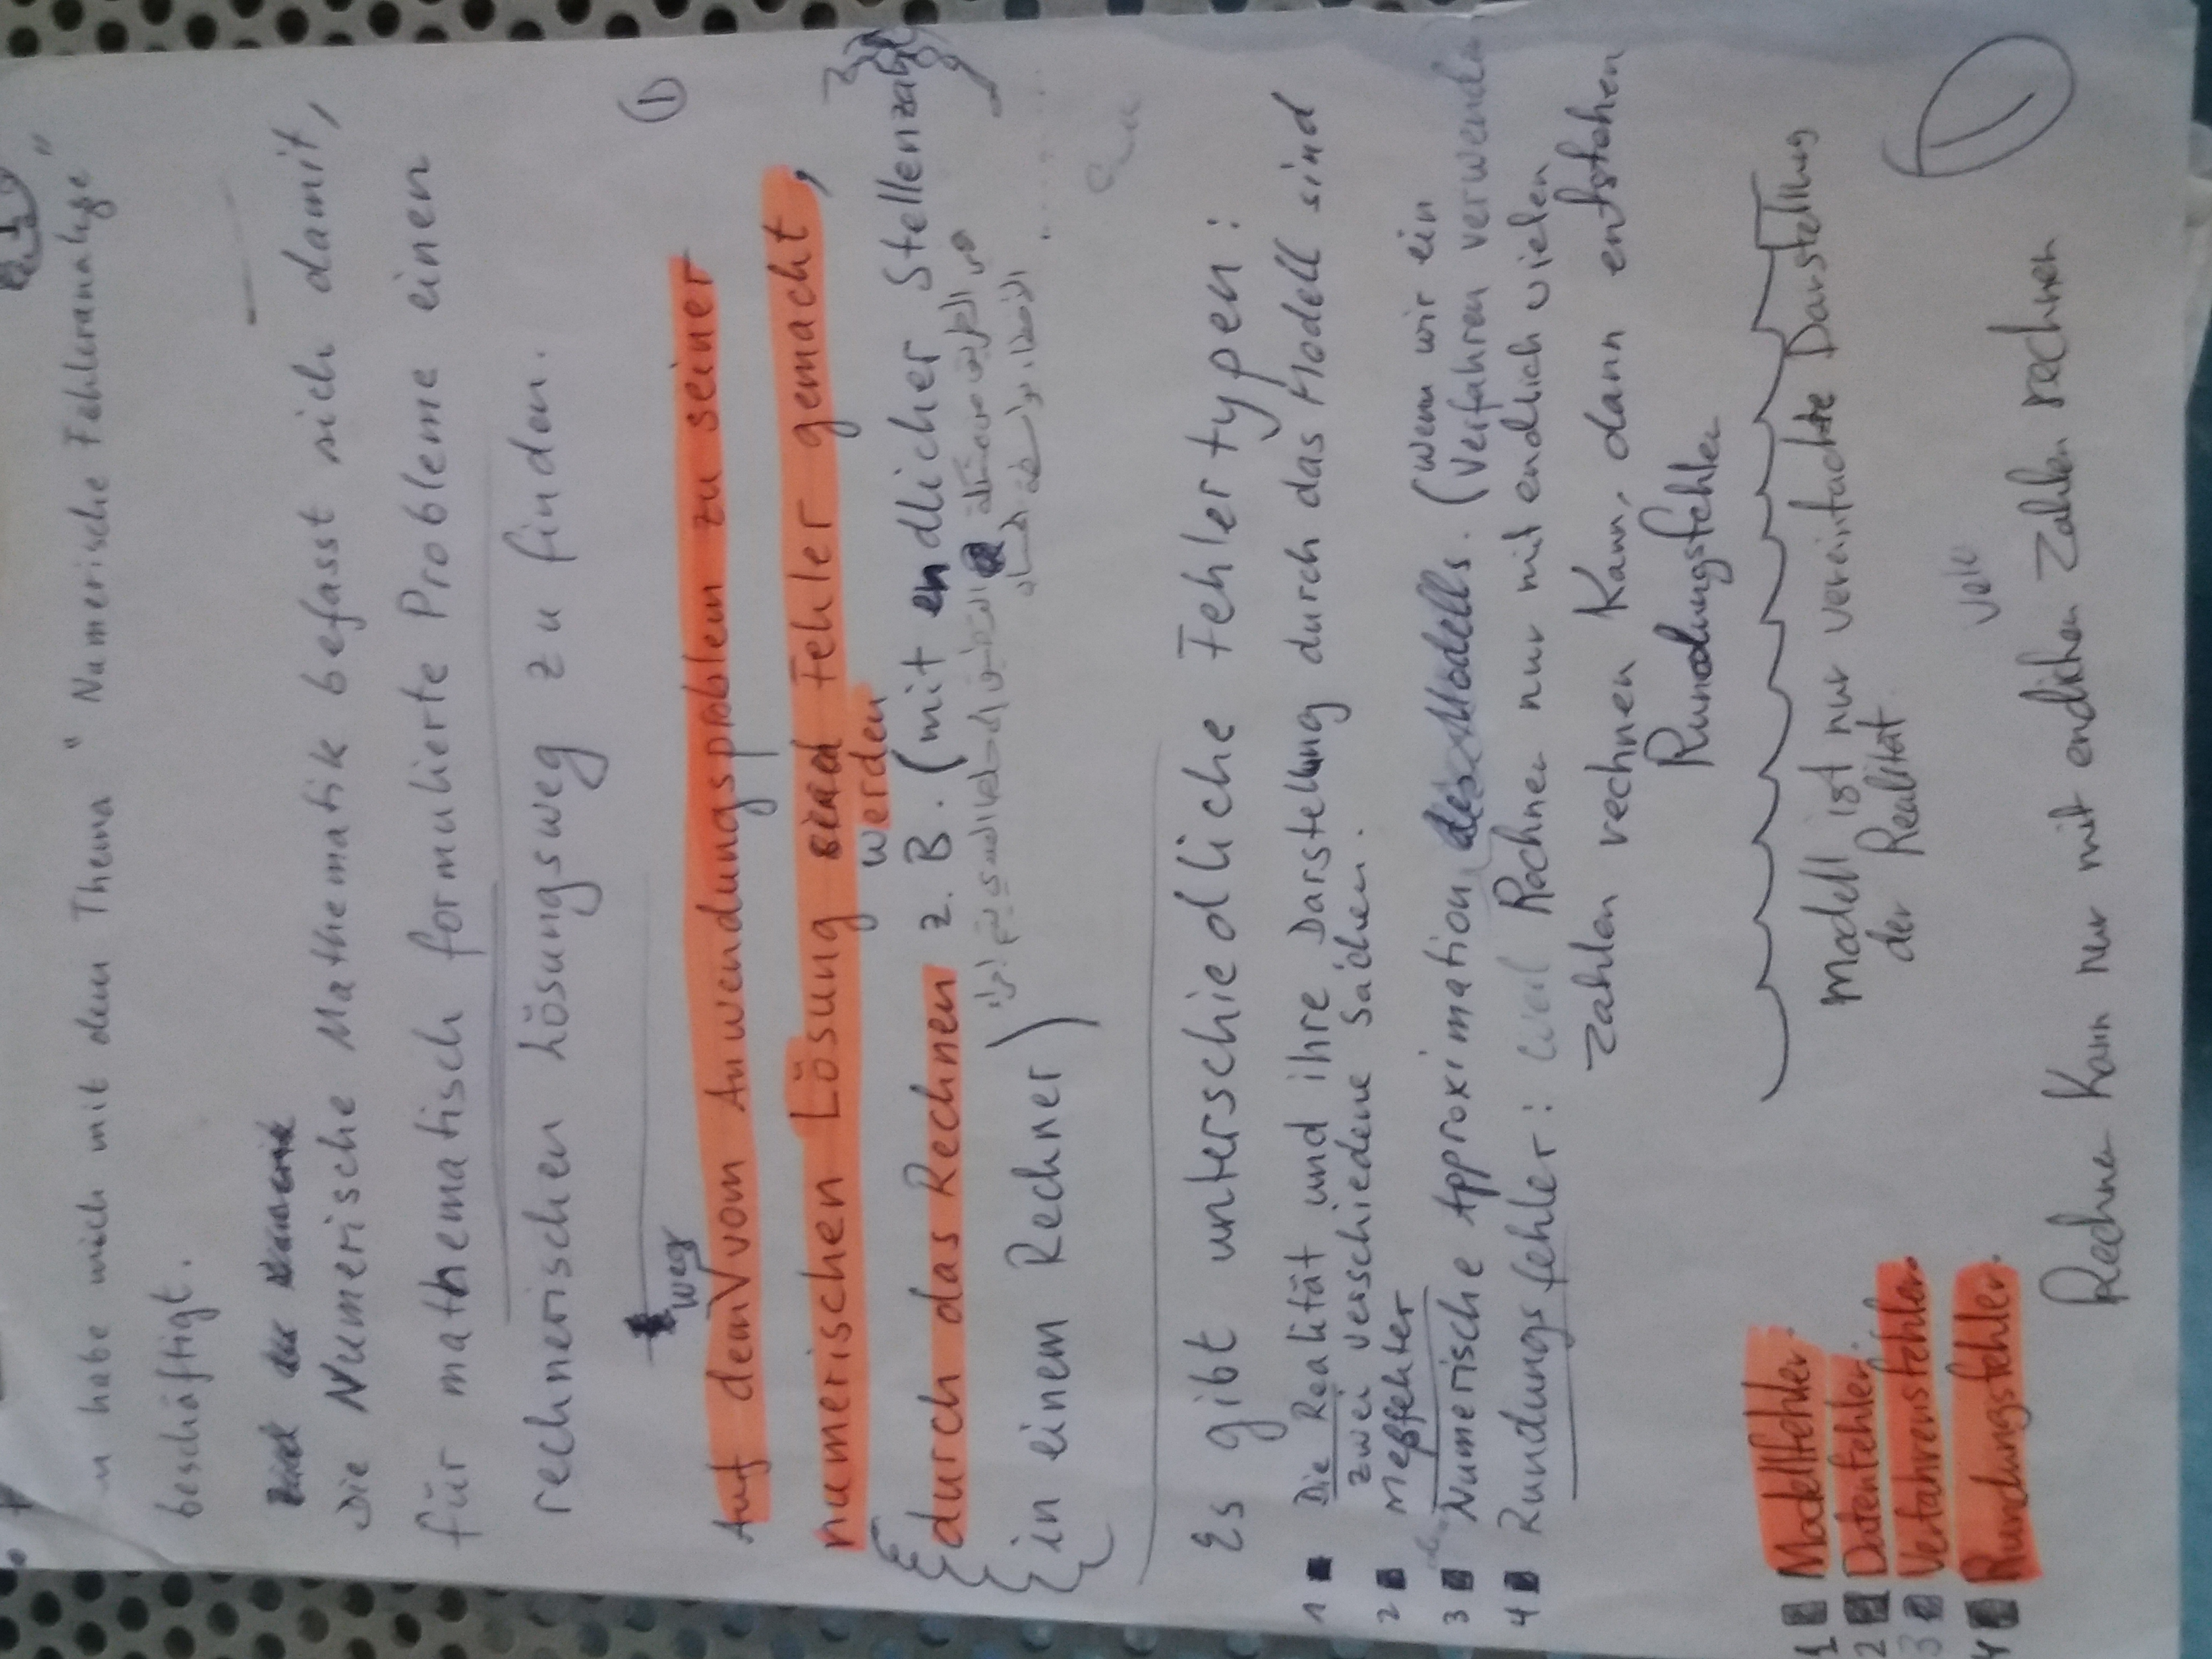 habe mich mit dem Thema "Numerische Fehleranalyse"
beschäftigt.
Die Numerische Mathematik befasst sich damit,
für mathematisch formulierte Probleme einen
rechnerischen Lösungsweg zu finden.
1
weg
Auf dem V vom Anwendungsproblem zu seiner
numerischen Lösung sind Fehler gemacht,
werden
durch das Rechnen z. B. (mit endlicher Stellenzahl
هي الطريق من مشكلة التطبيق إلى حلها العددي يتم إجراء
in einem Rechner)
الأخطاء بواسطة الحساب
Es gibt unterschiedliche Fehlertypen:
1 Die Realität und ihre Darstellung durch das Modell sind
zwei verschiedene Sachen.
2 Meßfehler
3 Numerische Approximation des Modells. (wenn wir ein
Verfahren verwenden
4 Rundungsfehler: weil Rechner nur mit endlich vielen
Zahlen rechnen Kann, dann entstehen
Rundungsfehler
1 Modellfehler.
2 Datenfehler.
3 Verfahrensfehler.
4 Rundungsfehler.
Modell ist nur vereinfachte Darstellung
der Realität
Rechner Kann nur mit endlichen Zahlen rechnen
1